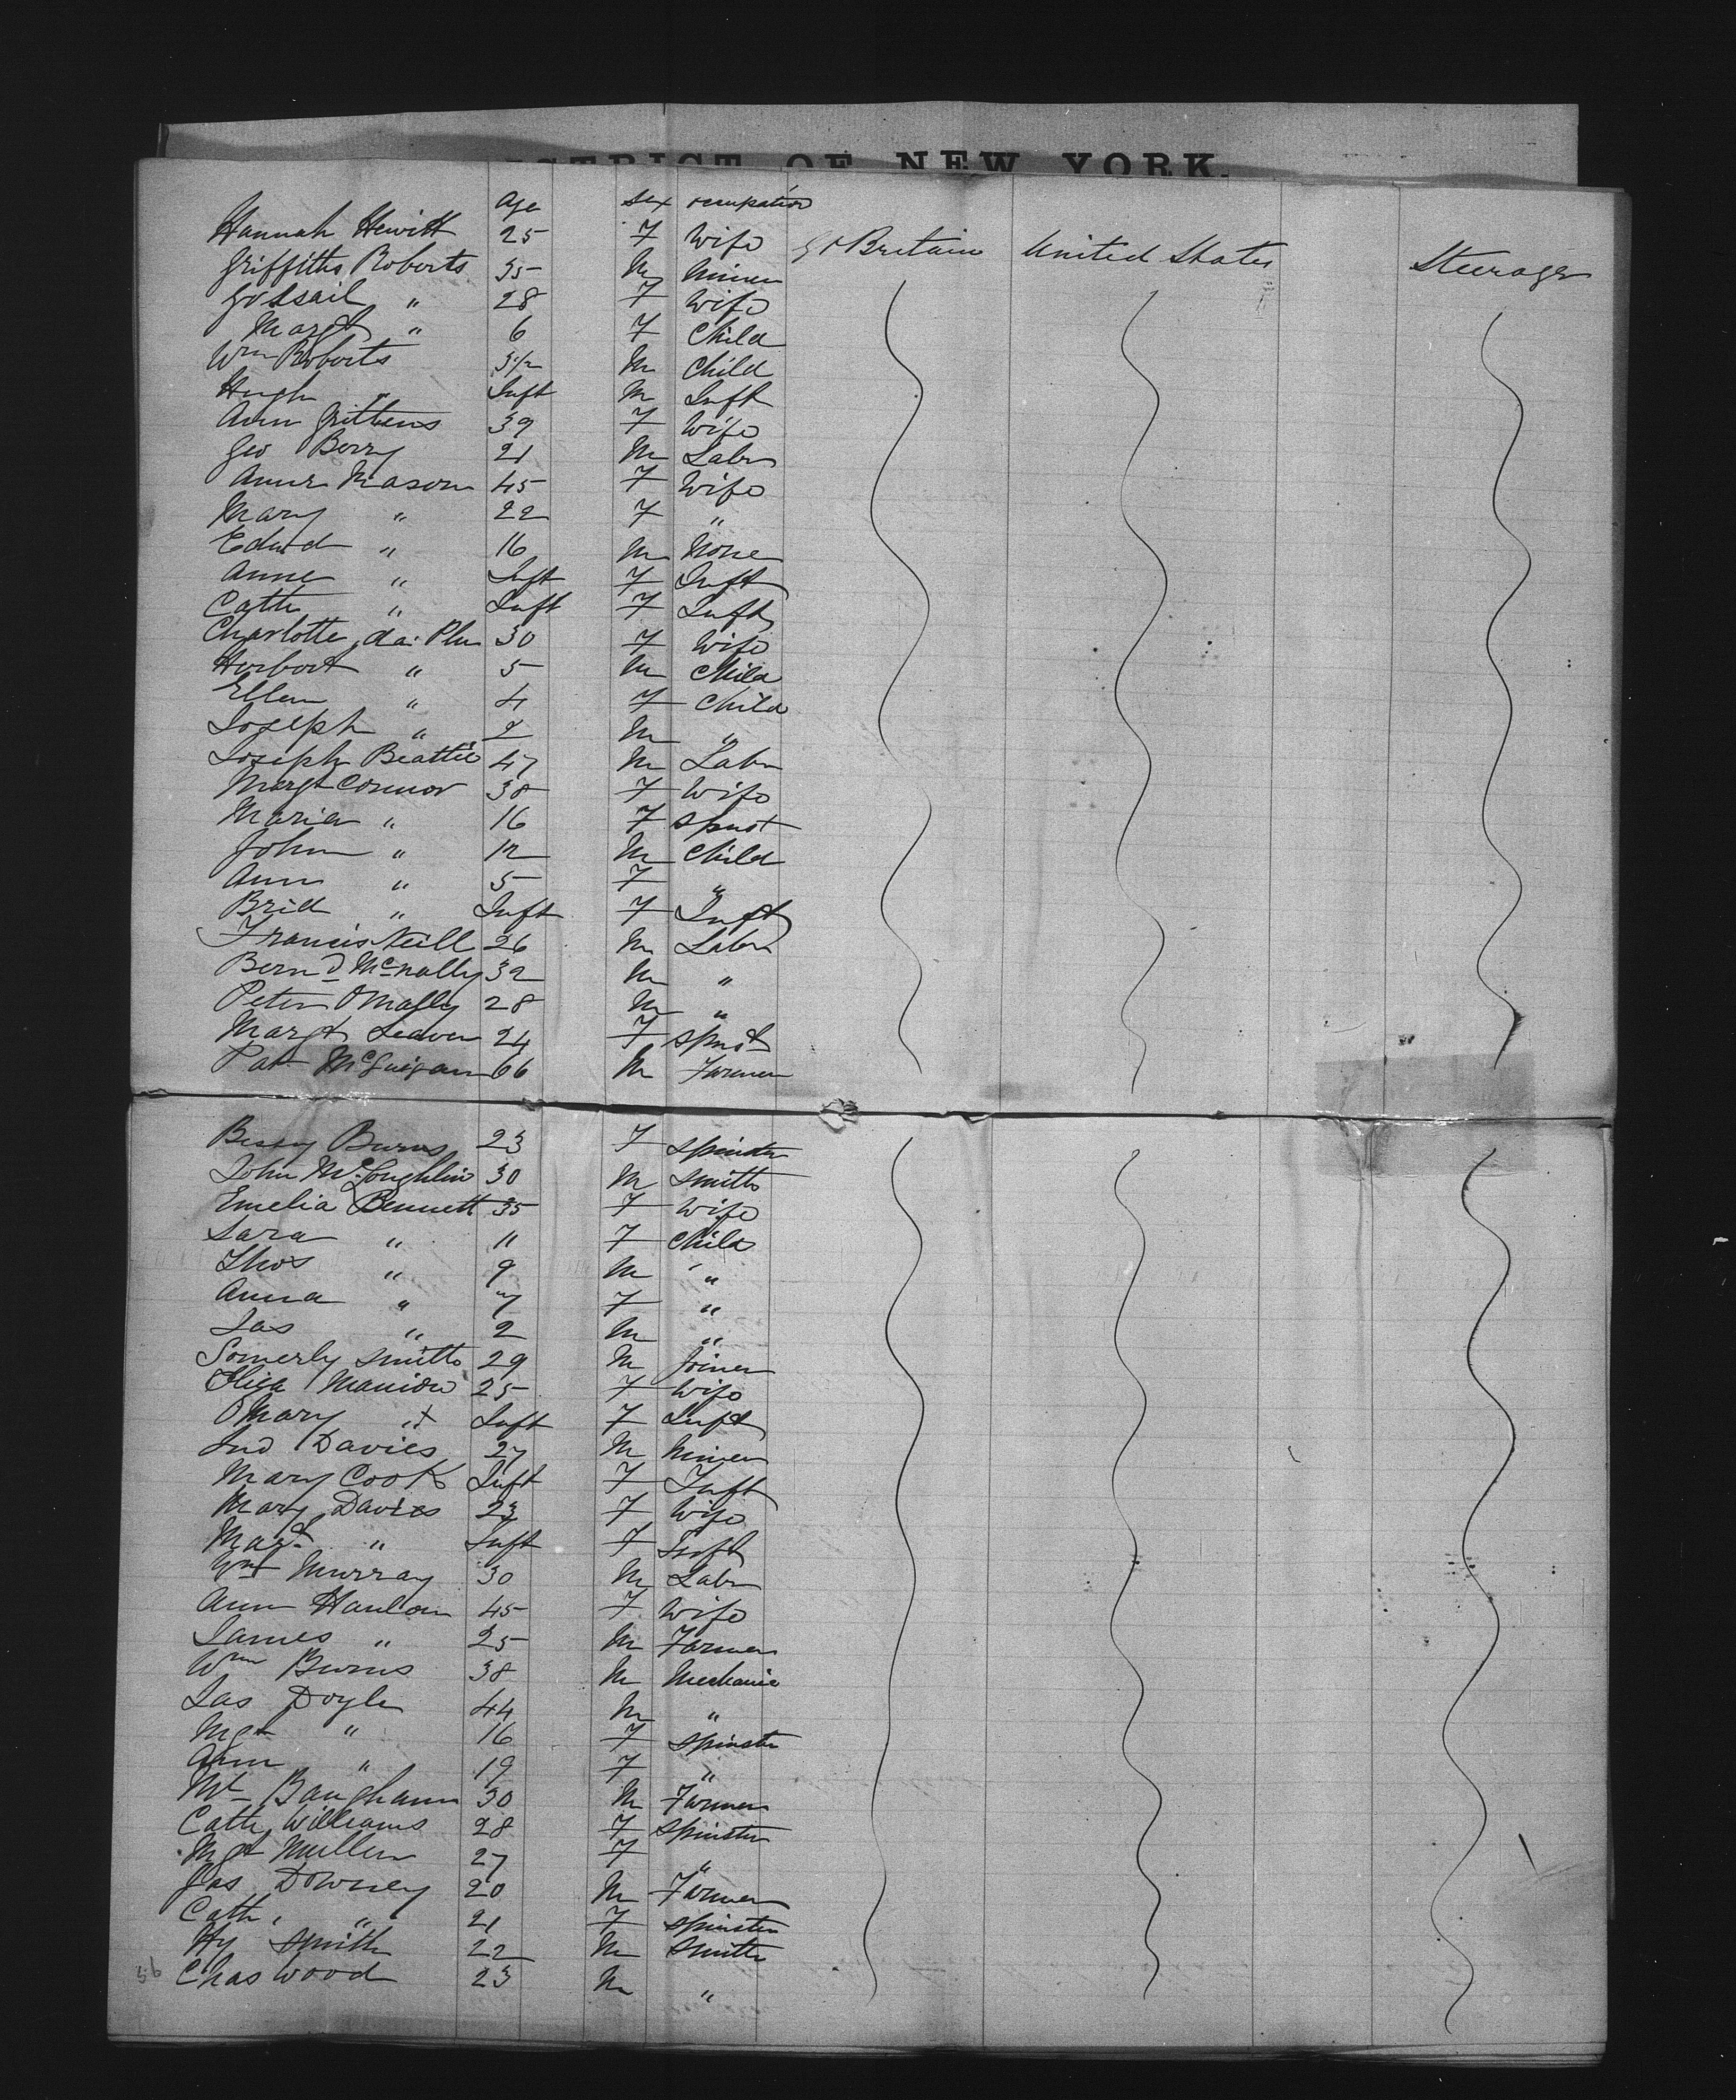 DISTRICT OF NEW YORK.
Age sex occupation
Hannah Hewitt 25 F Wife Gt Britain United States Steerage
Griffiths Roberts 35 M Miner
28 F Wife
Margt " 6 F Child
Wm Roberts 3½ M Child
Hugh " Inft M Inft
Ann Grittens 39 F Wife
Geo Berry 21 M Labr
Anne Mason 45 F Wife
Mary " 22 F "
Edwd " 16 M None
Anne " Inft F Inft
Cath " Inft F Inft
Charlotte da. Plu 30 F Wife
Herbert " 5 M Child
Ellen " 4 F Child
Joseph " 2 M "
Joseph Beattie 47 M Labr
Margt Connor 38 F Wife
Maria " 16 F Spinst
John " 12 M Child
Ann " 5 F "
Brid " Inft F Inft
Francis Neill 26 M Labr
Bernd McNally 32 M "
Peter OMally 28 M "
Margt 24 F Spinst
Pat McGuigan 66 M Farmer
Bessy Burns 23 F Spinster
John McLoughlin 30 M Smith
Emelia Bennett 35 F Wife
Sara " 11 F Child
Thos " 9 M "
Anna " 7 F "
Jas " 2 M "
Somerly Smith 29 M Joiner
Eliza Manion 25 F Wife
Mary " Inft F Inft
Jno Davies 27 M Miner
Mary Cook Inft F Inft
Mary Davies 23 F Wife
Margt " Inft F Inft
Wm Murray 30 M Labr
Ann Hanlon 45 F Wife
James " 25 M Farmer
Wm Burns 38 M Mechanic
Jas Doyle 44 M "
Mgt " 16 F Spinster
Ann " 19 F "
Mt Baughann 30 M Farmer
Cath Williams 28 F Spinster
Mgt Mullen 27 F "
Jas Downey 20 M Farmer
Cath " 21 F Spinster
Hy Smith 22 M Smith
56 Chas Wood 23 M "